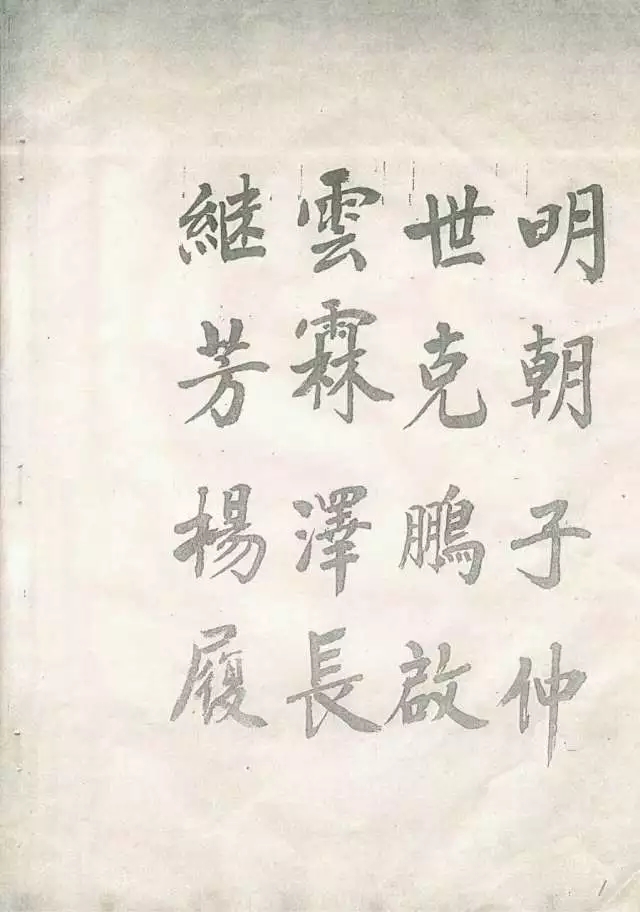 明朝子仲
世克鵬啟
雲霖澤長
継芳楊履
1